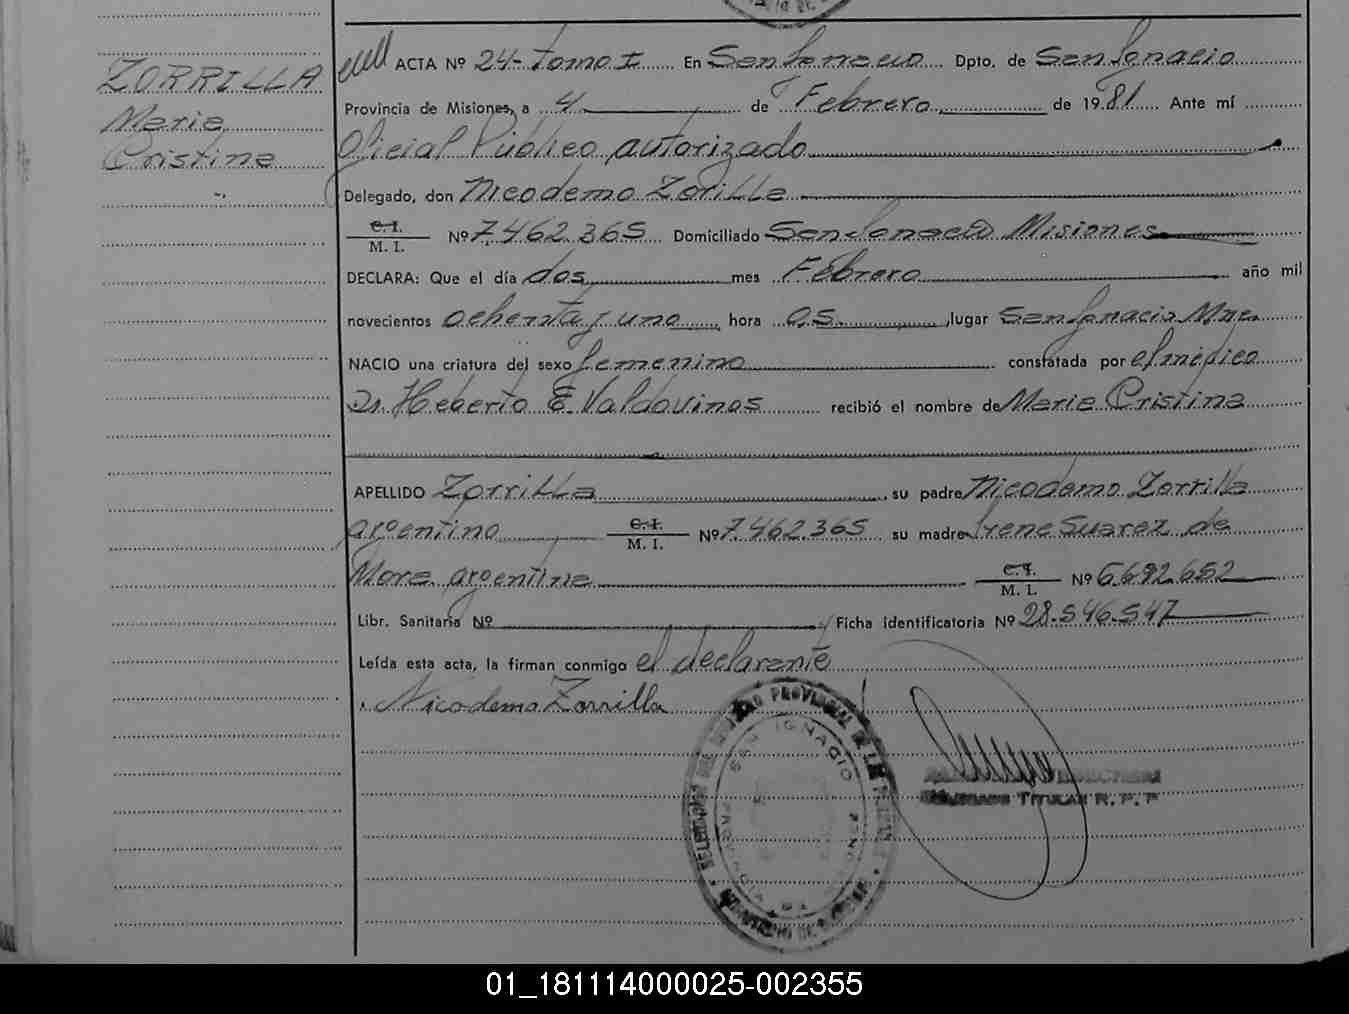 ZORRILLA
Maria
Cristina
ACTA Nº 24- tomo I En San Ignacio Dpto. de San Ignacio
Provincia de Misiones, a 4 de Febrero de 1981 Ante mí
Oficial Público autorizado
Delegado, don Nicodemo Zorilla
C. I.
M. I. Nº 7.462.365 Domiciliado San Ignacio Misiones
DECLARA: Que el día dos mes Febrero año mil
novecientos ochenta y uno hora 05 lugar San Ignacio Mnes.
NACIO una criatura del sexo femenino constatada por el médico
Dr. Heberto E. Valdovinos recibió el nombre de Maria Cristina
APELLIDO Zorrilla, su padre Nicodemo Zorrilla
argentino C. I. M. I. Nº 7.462.365 su madre Irene Suarez de
Mora argentina C. I. M. I. Nº 6.692.652
Libr. Sanitaria Nº Ficha identificatoria Nº 28.546.547
Leída esta acta, la firman conmigo el declarante
Nicodemo Zorrilla
SAN IGNACIO
TITULAR R. P. P.
01_181114000025-002355